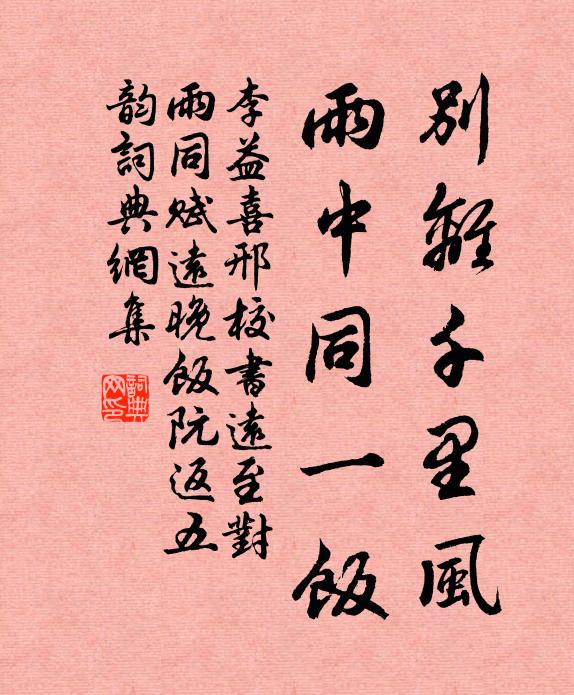 別離千里風
雨中同一飯
李益喜邢校書遠至對
雨同賦遠晚飯阮返五
韵詞典網集
詞典
网印